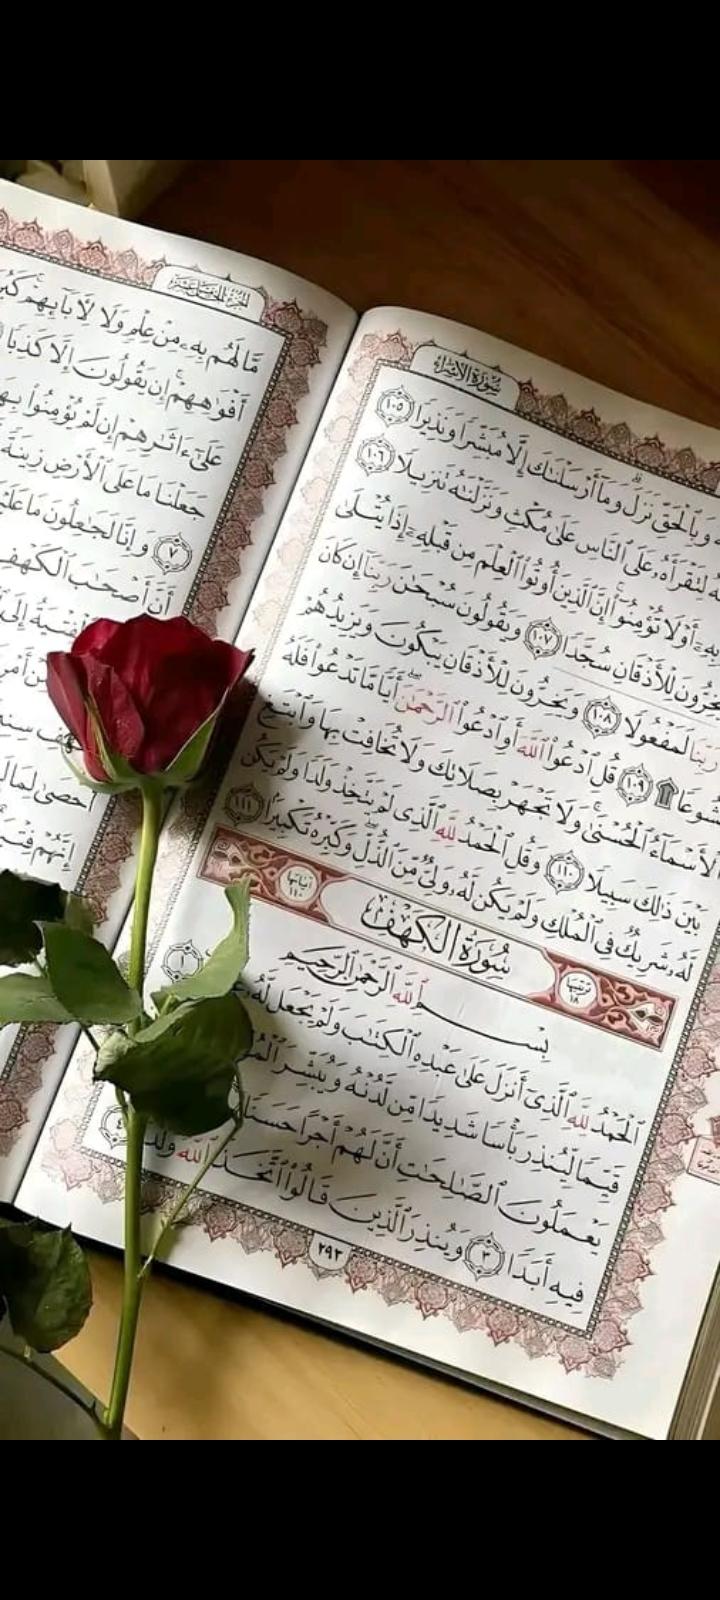 سُورَةُ الْإِسْرَاءِ
وَبِالْحَقِّ نَزَلَ وَمَا أَرْسَلْنَٰكَ إِلَّا مُبَشِّرًا وَنَذِيرًا ١٠٥
لِتَقْرَأَهُۥ عَلَى النَّاسِ عَلَىٰ مُكْثٍ وَنَزَّلْنَٰهُ تَنزِيلًا ١٠٦
بِهِۦٓ أَوْ لَا تُؤْمِنُوٓا۟ إِنَّ الَّذِينَ أُوتُوا۟ الْعِلْمَ مِن قَبْلِهِۦٓ إِذَا يُتْلَىٰ
يَخِرُّونَ لِلْأَذْقَانِ سُجَّدًا ١٠٧ وَيَقُولُونَ سُبْحَٰنَ رَبِّنَآ إِن كَانَ
رَبِّنَا لَمَفْعُولًا ١٠٨ وَيَخِرُّونَ لِلْأَذْقَانِ يَبْكُونَ وَيَزِيدُهُمْ
خُشُوعًا ١٠٩ قُلِ ادْعُوا۟ اللَّهَ أَوِ ادْعُوا۟ الرَّحْمَٰنَ أَيًّا مَّا تَدْعُوا۟ فَلَهُ
الْأَسْمَآءُ الْحُسْنَىٰ وَلَا تَجْهَرْ بِصَلَاتِكَ وَلَا تُخَافِتْ بِهَا وَابْتَغِ
بَيْنَ ذَٰلِكَ سَبِيلًا ١١٠ وَقُلِ الْحَمْدُ لِلَّهِ الَّذِى لَمْ يَتَّخِذْ وَلَدًا وَلَمْ يَكُن
لَّهُۥ شَرِيكٌ فِى الْمُلْكِ وَلَمْ يَكُن لَّهُۥ وَلِىٌّ مِّنَ الذُّلِّ وَكَبِّرْهُ تَكْبِيرًا ١١١
تَرْتِيبُهَا ١٨ سُورَةُ الْكَهْفِ آيَاتُهَا ١١٠
بِسْمِ اللَّهِ الرَّحْمَٰنِ الرَّحِيمِ
الْحَمْدُ لِلَّهِ الَّذِىٓ أَنزَلَ عَلَىٰ عَبْدِهِ الْكِتَٰبَ وَلَمْ يَجْعَل لَّهُۥ
قَيِّمًا لِّيُنذِرَ بَأْسًا شَدِيدًا مِّن لَّدُنْهُ وَيُبَشِّرَ
يَعْمَلُونَ الصَّٰلِحَٰتِ أَنَّ لَهُمْ أَجْرًا حَسَنًا
فِيهِ أَبَدًا ٣ وَيُنذِرَ الَّذِينَ قَالُوا۟ اتَّخَذَ اللَّهُ وَلَدًا ٤
٢٩٣
الجزء الخامس عشر
مَّا لَهُم بِهِۦ مِنْ عِلْمٍ وَلَا لِآبَآئِهِمْ
أَفْوَٰهِهِمْ إِن يَقُولُونَ إِلَّا كَذِبًا
عَلَىٰٓ ءَاثَٰرِهِمْ إِن لَّمْ يُؤْمِنُوا۟
جَعَلْنَا مَا عَلَى الْأَرْضِ زِينَةً
٧ وَإِنَّا لَجَٰعِلُونَ مَا
أَنَّ أَصْحَٰبَ الْكَهْفِ
إِلَى
أَحْصَىٰ لِمَا
إِنَّهُمْ